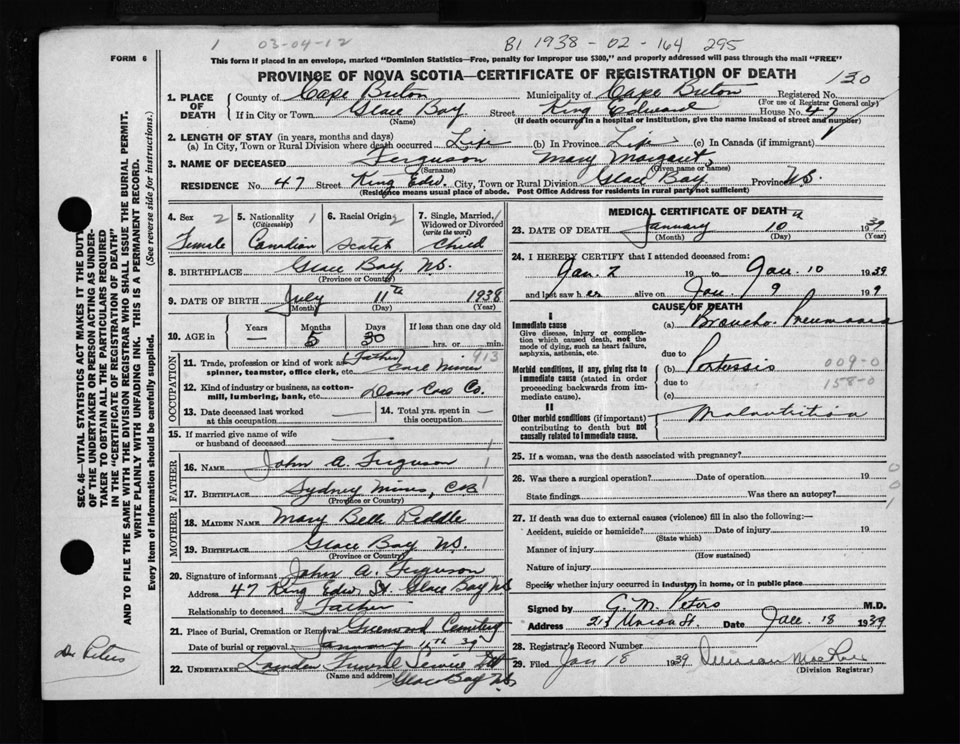 1 03-04-12
B1 1938 - 02 - 164 295
FORM 6
This form if placed in an envelope, marked "Dominion Statistics—Free, penalty for improper use $300," and properly addressed will pass through the mail "FREE"
PROVINCE OF NOVA SCOTIA—CERTIFICATE OF REGISTRATION OF DEATH
130
1. PLACE OF DEATH County of Cape Breton Municipality of Cape Breton Registered No.
(For use of Registrar General only)
If in City or Town Glace Bay Street King Edward House No. 47
(Name) (If death occurred in a hospital or institution, give the name instead of street and number)
2. LENGTH OF STAY (in years, months and days)
(a) In City, Town or Rural Division where death occurred Life (b) In Province Life (c) In Canada (if immigrant)
3. NAME OF DECEASED Ferguson Mary Margaret
(Surname) (Given name or names)
RESIDENCE No. 47 Street King Edw. City, Town or Rural Division Glace Bay Province N.S.
(Residence means usual place of abode. Post Office Address for residents in rural parts not sufficient)
4. Sex 2 Female
5. Nationality 1 (Citizenship) Canadian
6. Racial Origin 2 Scotch
7. Single, Married, Widowed or Divorced (write the word) 1 Child
8. BIRTHPLACE Glace Bay, N.S.
(Province or Country)
9. DATE OF BIRTH July 11th 1938
(Month) (Day) (Year)
10. AGE in Years — Months 5 Days 30 If less than one day
hrs. or min.
OCCUPATION
11. Trade, profession or kind of work as spinner, teamster, office clerk, etc. (Father) Coal Miner 913
12. Kind of industry or business, as cotton-mill, lumbering, bank, etc. Dom Coal Co.
13. Date deceased last worked at this occupation —
14. Total yrs. spent in this occupation —
15. If married give name of wife or husband of deceased —
FATHER
16. NAME John A. Ferguson 1
17. BIRTHPLACE Sydney Mines, C.B. 1
(Province or Country)
MOTHER
18. MAIDEN NAME Mary Belle Peddle
19. BIRTHPLACE Glace Bay N.S.
(Province or Country)
20. Signature of informant John A. Ferguson
Address 47 King Edw St. Glace Bay N.S.
Relationship to deceased Father
21. Place of Burial, Cremation or Removal Greenwood Cemetery
Date of burial or removal January 39
22. UNDERTAKER Funeral Service Ltd
(Name and address) Glace Bay N.S.
MEDICAL CERTIFICATE OF DEATH
23. DATE OF DEATH January 10 1939
(Month) (Day) (Year)
24. I HEREBY CERTIFY that I attended deceased from:
Jan. 2 19 to Jan. 10 1939
and last saw her alive on Jan 9 19
CAUSE OF DEATH
I
Immediate cause
Give disease, injury or complication which caused death, not the mode of dying, such as heart failure, asphyxia, asthenia, etc.
(a) Broncho. Pneumonia
due to
Morbid conditions, if any, giving rise to immediate cause (stated in order proceeding backwards from immediate cause).
(b) Pertussis 009-0
due to 158-0
(c)
II
Other morbid conditions (if important) contributing to death but not causally related to immediate cause.
Malnutrition
25. If a woman, was the death associated with pregnancy?
26. Was there a surgical operation? Date of operation 19
State findings Was there an autopsy?
0 0 1
27. If death was due to external causes (violence) fill in also the following:—
Accident, suicide or homicide? Date of injury 19
(State which)
Manner of injury
(How sustained)
Nature of injury
Specify whether injury occurred in industry, in home, or in public place
Signed by G. M. Peters M.D.
Address Union St. Date Jan. 18 1939
28. Registrar's Record Number
29. Filed Jan 18 1939
(Division Registrar)
SEC. 46—VITAL STATISTICS ACT MAKES IT THE DUTY
OF THE UNDERTAKER OR PERSON ACTING AS UNDER-
TAKER TO OBTAIN ALL THE PARTICULARS REQUIRED
IN THE "CERTIFICATE OF REGISTRATION OF DEATH"
AND TO FILE THE SAME WITH THE DIVISION REGISTRAR WHO SHALL ISSUE THE BURIAL PERMIT.
WRITE PLAINLY WITH UNFADING INK. THIS IS A PERMANENT RECORD.
Every item of information should be carefully supplied. (See reverse side for instructions.)
Dr Peters